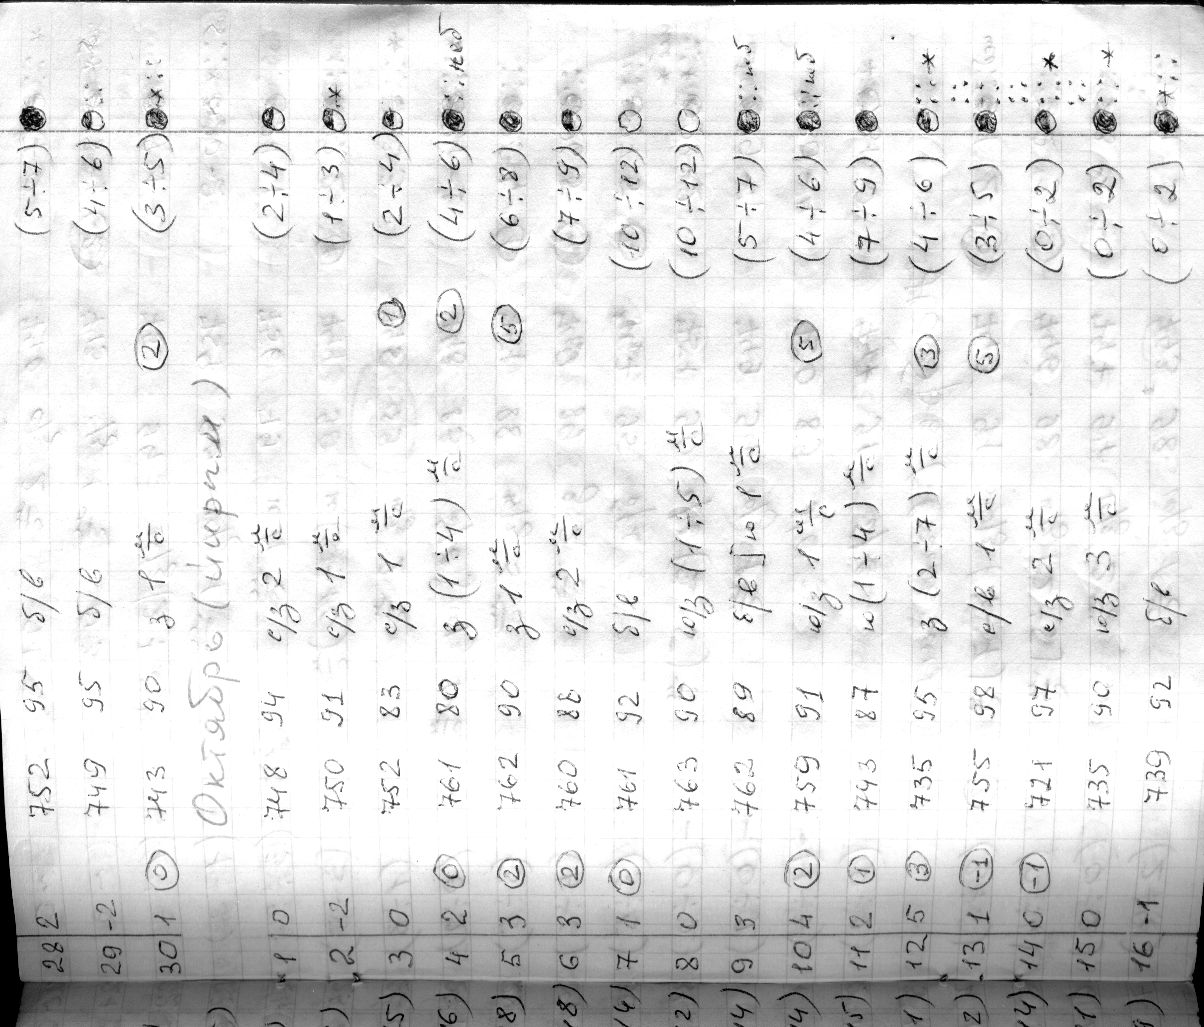 28 2 752 95 б/в (5÷7)
29 -2 749 95 б/в (4÷6)
30 1 (0) 743 90 з 1 м/с (2) (3÷5)
Октябрь
1 0 748 94 с/з 2 м/с (2÷4)
2 -2 750 91 с/з 1 м/с (1÷3)
3 0 752 83 с/з 1 м/с (1) (2÷4)
4 2 (0) 761 80 з (1÷4) м/с (2) (4÷6)
5 3 (2) 762 90 з 1 м/с (5) (6÷8)
6 3 (2) 760 88 с/з 2 м/с (7÷9)
7 1 (0) 761 92 б/в (10÷12)
8 0 763 90 ю/з (1÷5) м/с (10÷12)
9 3 762 89 б/в ю 1 м/с (5÷7)
10 4 (2) 759 91 ю/з 1 м/с (5) (4÷6)
11 2 (1) 743 87 ю (1÷4) м/с (7÷9)
12 5 (3) 735 95 з (2÷7) м/с (3) (4÷6)
13 1 (-1) 755 98 с/в 1 м/с (5) (3÷5)
14 0 (-1) 721 97 с/з 2 м/с (0÷2)
15 0 735 90 ю/з 3 м/с (0÷2)
16 -1 739 92 б/в (0÷2)
5)
6)
8)
18)
14)
2)
14)
4)
5)
1)
2)
14)
1)